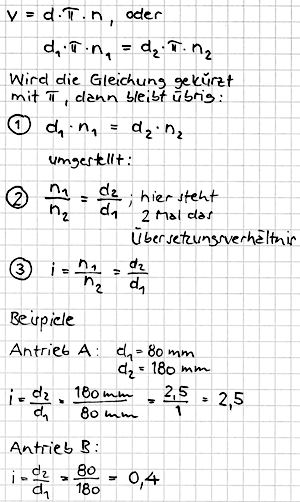 v = d·π·n, oder
d₁·π·n₁ = d₂·π·n₂
Wird die Gleichung gekürzt
mit π, dann bleibt übrig:
① d₁·n₁ = d₂·n₂
umgestellt:
② n₁/n₂ = d₂/d₁ ; hier steht
2 Mal das
Übersetzungsverhältnis
③ i = n₁/n₂ = d₂/d₁
Beispiele
Antrieb A: d₁ = 80 mm
d₂ = 180 mm
i = d₂/d₁ = 180 mm/80 mm = 2,5/1 = 2,5
Antrieb B:
i = d₂/d₁ = 80/180 = 0,4